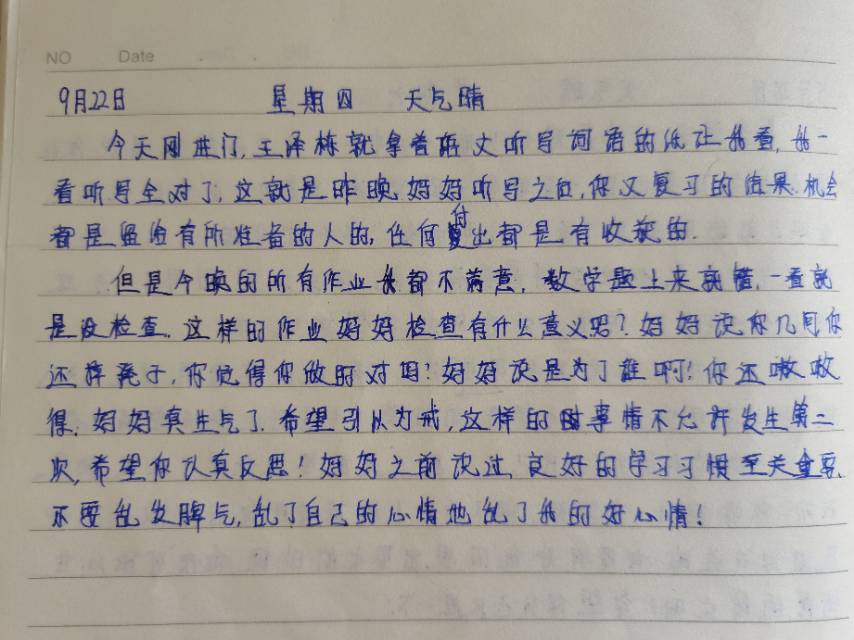 NO Date
9月22日 星期四 天气晴
今天刚进门,王泽栋就拿着语文听写词语的纸让我看,我一
看听写全对了,这就是昨晚妈妈听写之后,你又复习的结果.机会
都是留给有所准备的人的,任何付出都是有收获的.
但是今晚的所有作业我都不满意,数学题上来就错,一看就
是没检查.这样的作业妈妈检查有什么意义呢?妈妈说你几句你
还摔凳子,你觉得你做的对吗?妈妈说是为了谁啊!你还嗷嗷
得,妈妈真生气了.希望引以为戒,这样的事情不允许发生第二
次,希望你认真反思!妈妈之前说过,良好的学习习惯至关重要,
不要乱发脾气,乱了自己的心情也乱了我的好心情!